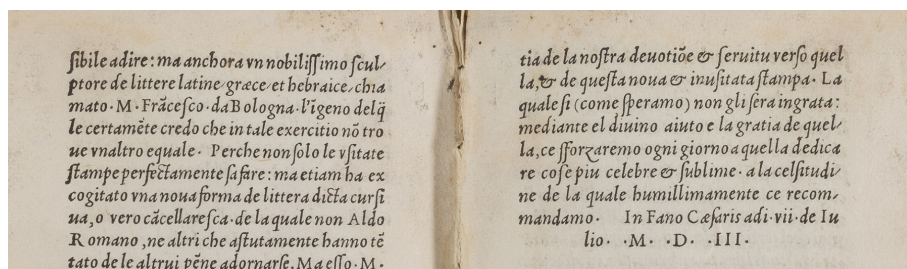 ſibile adire: ma anchora vn nobiliſſimo ſcul-
ptore de littere latine græce et hebraice, chia
mato · M · Frãceſco · da Bologna · l'ĩgeno delq̃
le certamẽte credo che in tale exercitio nõ tro
ue vnaltro equale · Perche non ſolo le vſitate
ſtampe perfectamente ſa fare: ma etiam ha ex
cogitato vna noua forma de littera dicta curſi
ua, o vero cãcellareſca · de la quale non Aldo
Romano, ne altri che aſtutamente hanno tẽ
tato de le altrui pẽne adornarſe. Ma eſſo · M ·
tia de la noſtra deuotiõe & ſeruitu verſo quel
la, & de queſta noua & inuſitata ſtampa · La
quale ſi (come ſperamo) non gli ſera ingrata:
mediante el diuino aiuto e la gratia de quel-
la, ce ſſorzaremo ogni giorno a quella dedica
re coſe piu celebre & ſublime · a la celſitudi-
ne de la quale humillimamente ce recom-
mandamo · In Fano Cæſaris adi · vii · de Iu
lio · · M · · D · · III ·